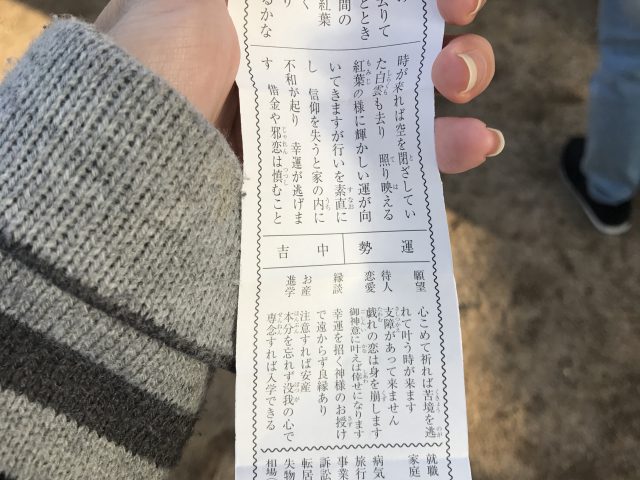 去りて
るとき
間の
紅葉
り
るかな
時が来れば空を閉ざしてい
た白雲も去り　照り映える
紅葉の様に輝かしい運が向
いてきますが行いを素直に
し　信仰を失うと家の内に
不和が起り　幸運が逃げま
す　借金や邪恋は慎むこと
運勢
中吉
願望　心こめて祈れば苦境を逃
れて叶う時が来ます
待人　支障があって来ません
恋愛　戯れの恋は身を崩します
御神意に叶えば倖せになります
縁談　幸運を招く神様のお授け
で遠からず良縁あり
お産　注意すれば安産
進学　本分を忘れず没我の心で
専念すれば入学できる
就職
家庭
病気
旅行
事業
訴訟
転居
失物
相場